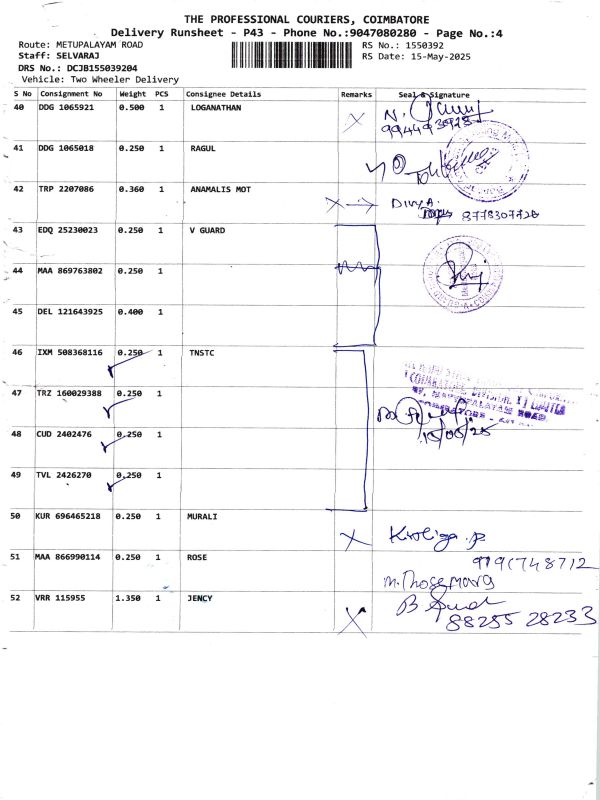 THE PROFESSIONAL COURIERS, COIMBATORE
Delivery Runsheet - P43 - Phone No.:9047080280 - Page No.:4
Route: METUPALAYAM ROAD
RS No.: 1550392
Staff: SELVARAJ
RS Date: 15-May-2025
DRS No.: DCJB155039204
Vehicle: Two Wheeler Delivery
S No Consignment No Weight PCS Consignee Details Remarks Seal & Signature
40 DDG 1065921 0.500 1 LOGANATHAN
994493923
41 DDG 1065018 0.250 1 RAGUL
42 TRP 2207086 0.360 1 ANAMALIS MOT
DIVYA.
8778307726
43 EDQ 25230023 0.250 1 V GUARD
44 MAA 869763802 0.250 1
45 DEL 121643925 0.400 1
46 IXM 508368116 0.250 1 TNSTC
47 TRZ 160029388 0.250 1
48 CUD 2402476 0.250 1
15/05/25
49 TVL 2426270 0.250 1
50 KUR 696465218 0.250 1 MURALI
51 MAA 866990114 0.250 1 ROSE
52 VRR 115955 1.350 1 JENCY
88255 28233